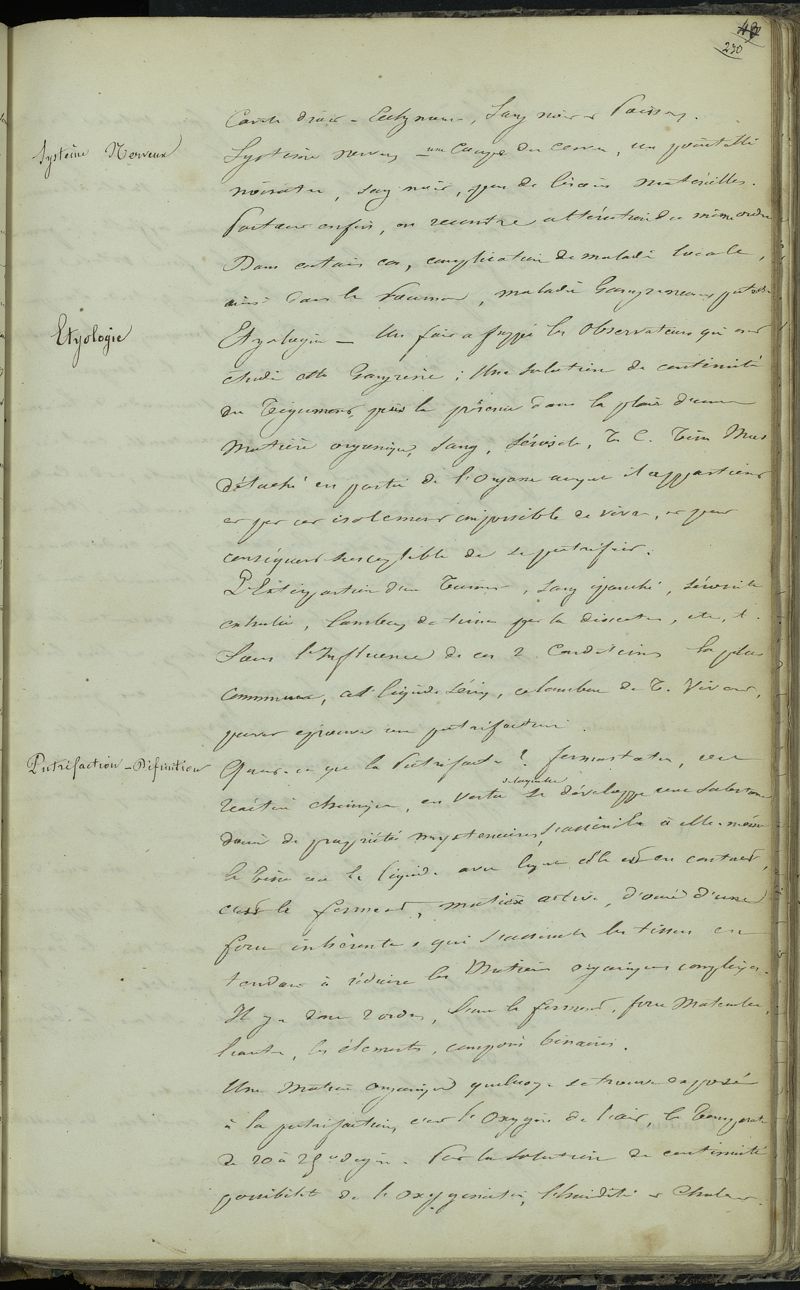 230
Système Nerveux
Système nerveux une Coupe du cerveau, un pointillé
noirâtre, sang noir, peu de lésions matérielles.
Partout enfin, on rencontre altération du même ordre
Dans certains cas, complication de maladie locale,
ainsi dans le Poumon, maladie Gangreneuse
Etyologie
Etyologie — Un fait a frappé les Observateurs qui ont
étudié cette Gangrène ; Une solution de continuité
du Tégument, puis la présence dans la plaie d'une
Matière organique, Sang, Sérosité, T. C.
détaché en partie de l'Organe auquel il appartient
et par cet isolement impossible de vivre, et par
conséquent susceptible de se putrifier.
L'Extirpation d'une Tumeur, Sang épanché, Sérosité
lambeau de tissu par la dissection, etc,
Sous l'Influence de ces 2 Conditions les plus
communes, ce lambeau de T. Vivant,
peuvent éprouver une putrifaction.
Putréfaction - Définition
Qu'est-ce que la Putréfaction ? fermentation, c'est
réaction chimique, en Vertu de laquelle se développe une substance
douée de propriétés mystérieuses, s'assimile à elle-même
le tissu ou le liquide avec lequel elle est en contact,
c'est le ferment, matière active, douée d'une
force inhérente, qui s'assimile les tissus en
tendant à réduire les Matières organiques complexes.
Il y a donc 2 ordres, le ferment, force Moléculaire,
l'autre, les éléments, composés binaires.
Une Matière organique quelconque se trouve exposée
à la putrifaction, c'est l'Oxygène de l'air, la Température
de 20 à 25 degrés. Par la solution de continuité
possibilité de l'oxygénation, l'humidité et Chaleur.